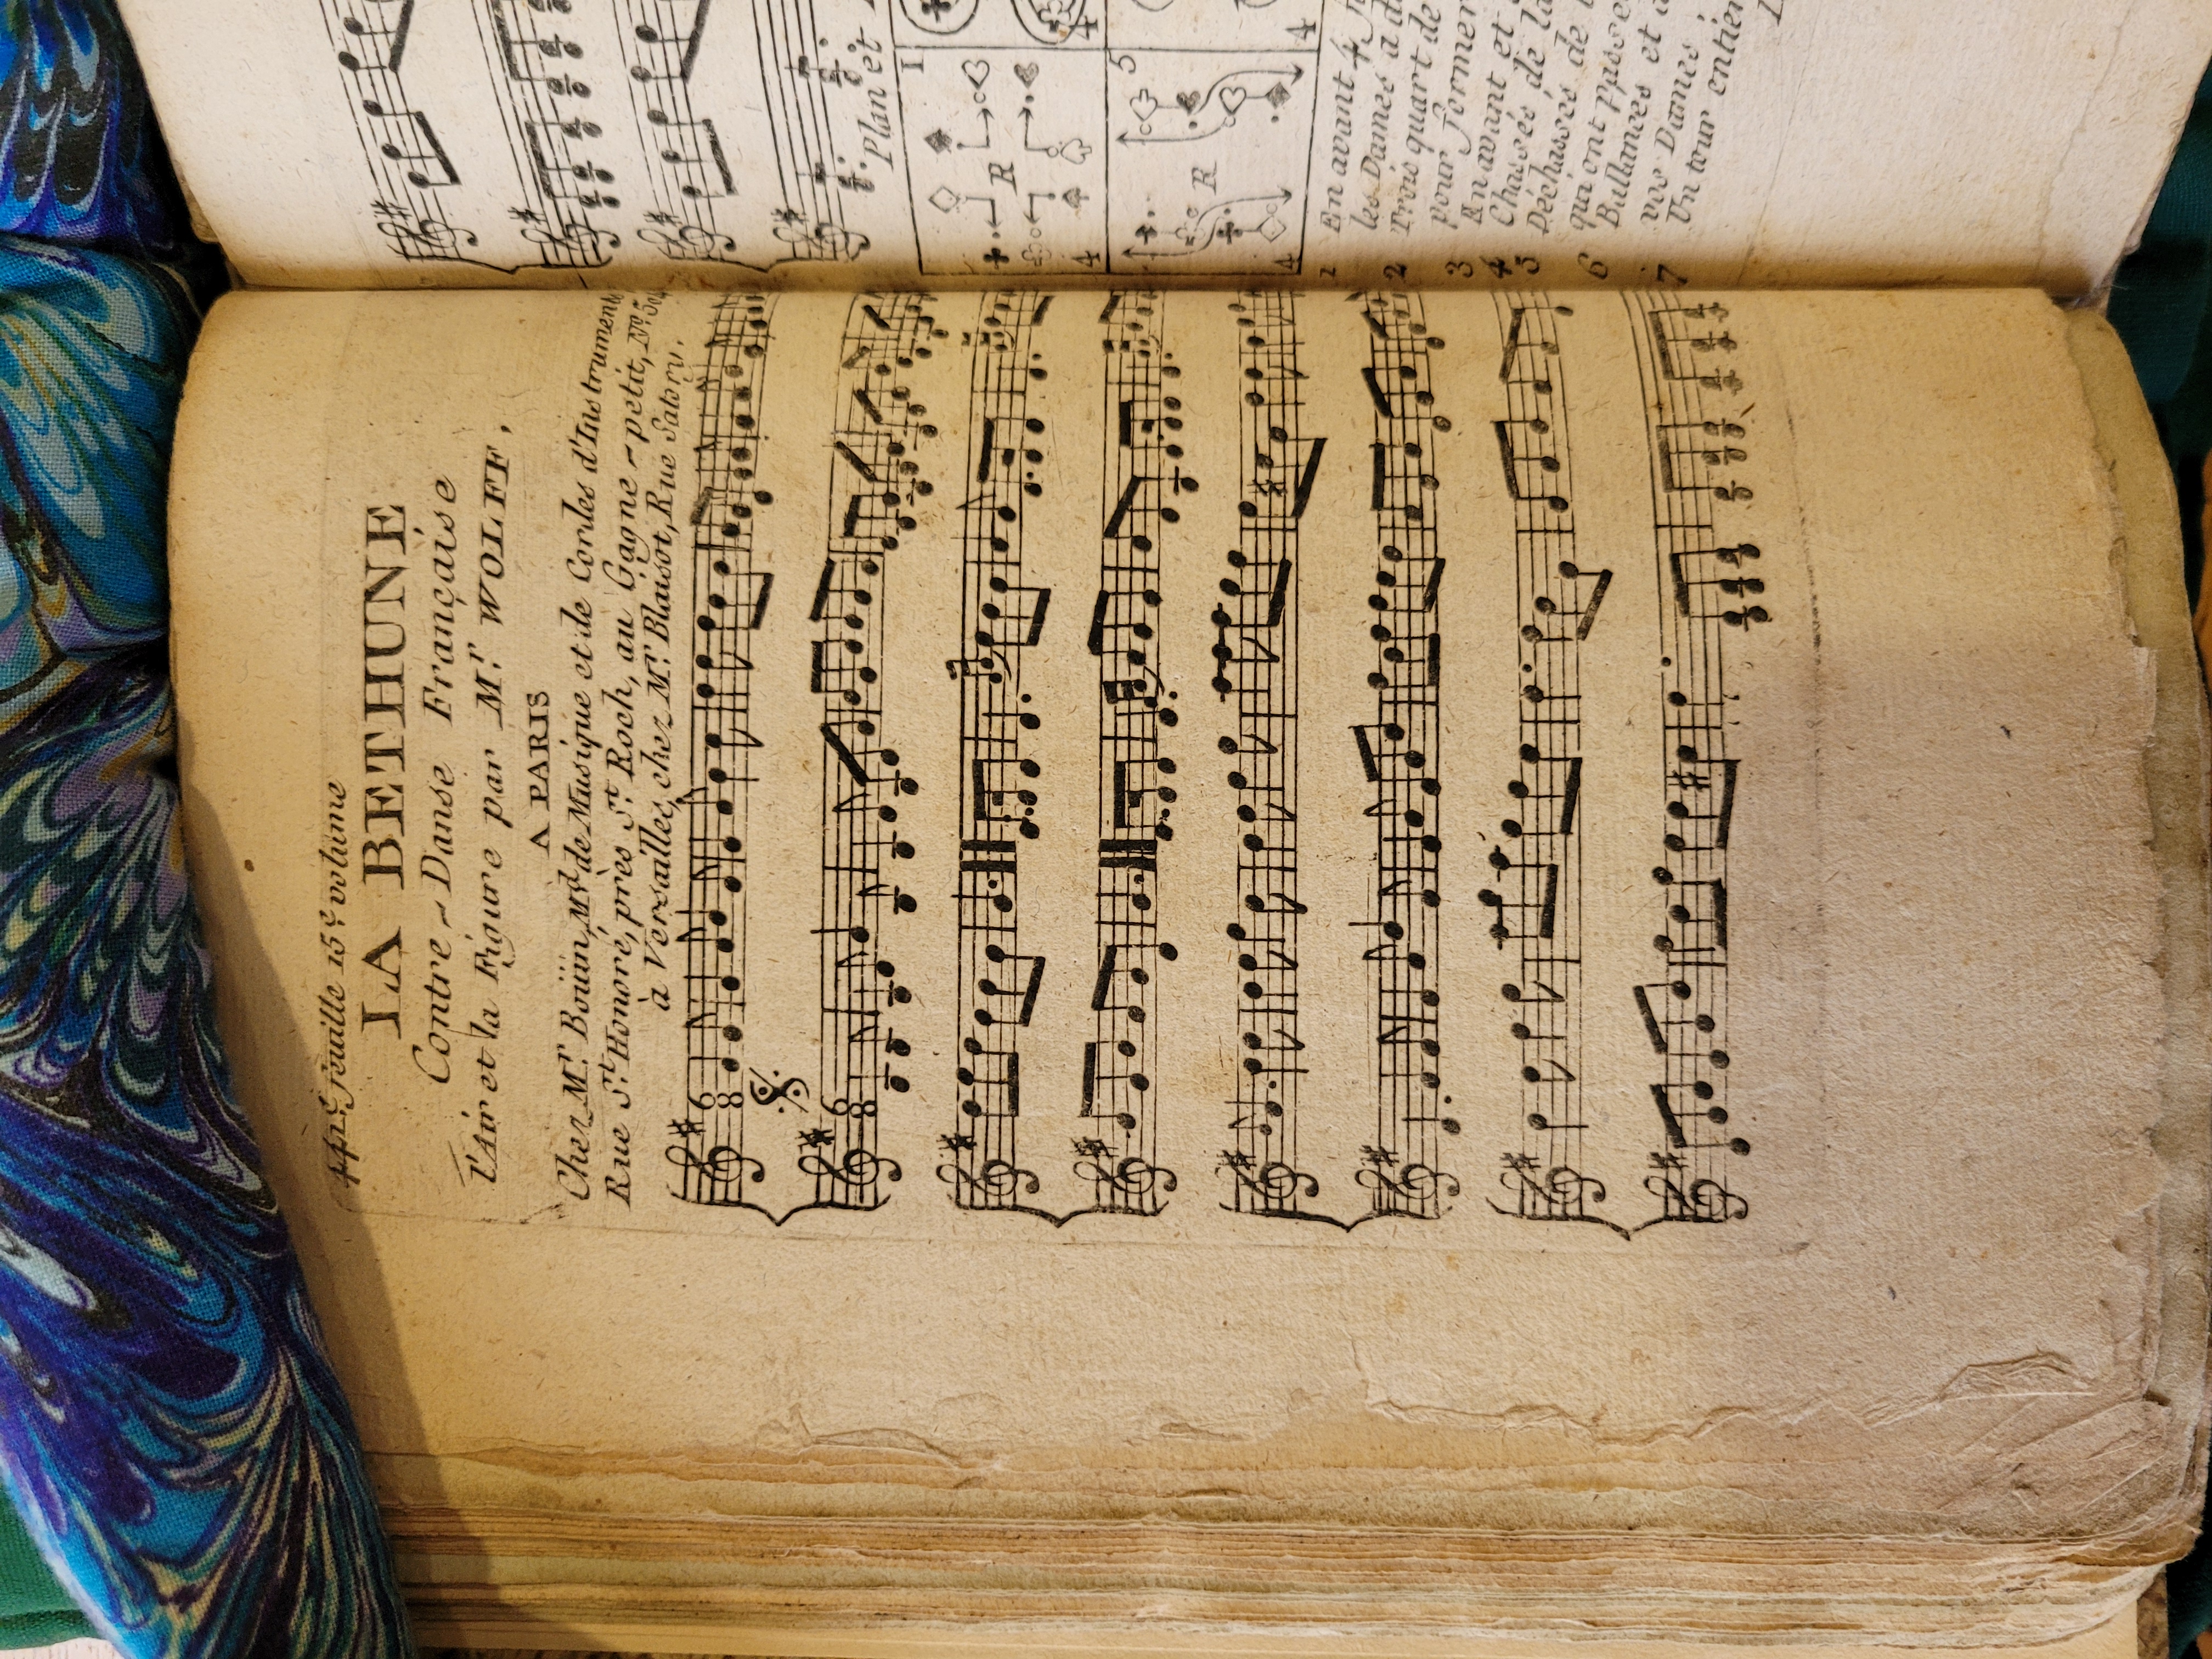 feuille 15.e volume
LA BETHUNE
Contre-Danse Française
l'Air et la Figure par M.r WOLFF,
A PARIS
Chez M.r Boüin, M.d de Musique et de Cordes d'Instruments
Rue S.t Honoré, près S.t Roch, au Gagne-petit, N.o
à Versailles, chez M.r Blaisot, Rue Satory.
6
8
6
8
Plan et
1
R
4
4
5
R
4
4
1 En avant 4
les Dames a
2 Trois quart de
pour former
3 En avant et
4 Chassés de la
5 Déchassés de
6 qui ont
Ballancés et
7 vos Dames
Un tour entier